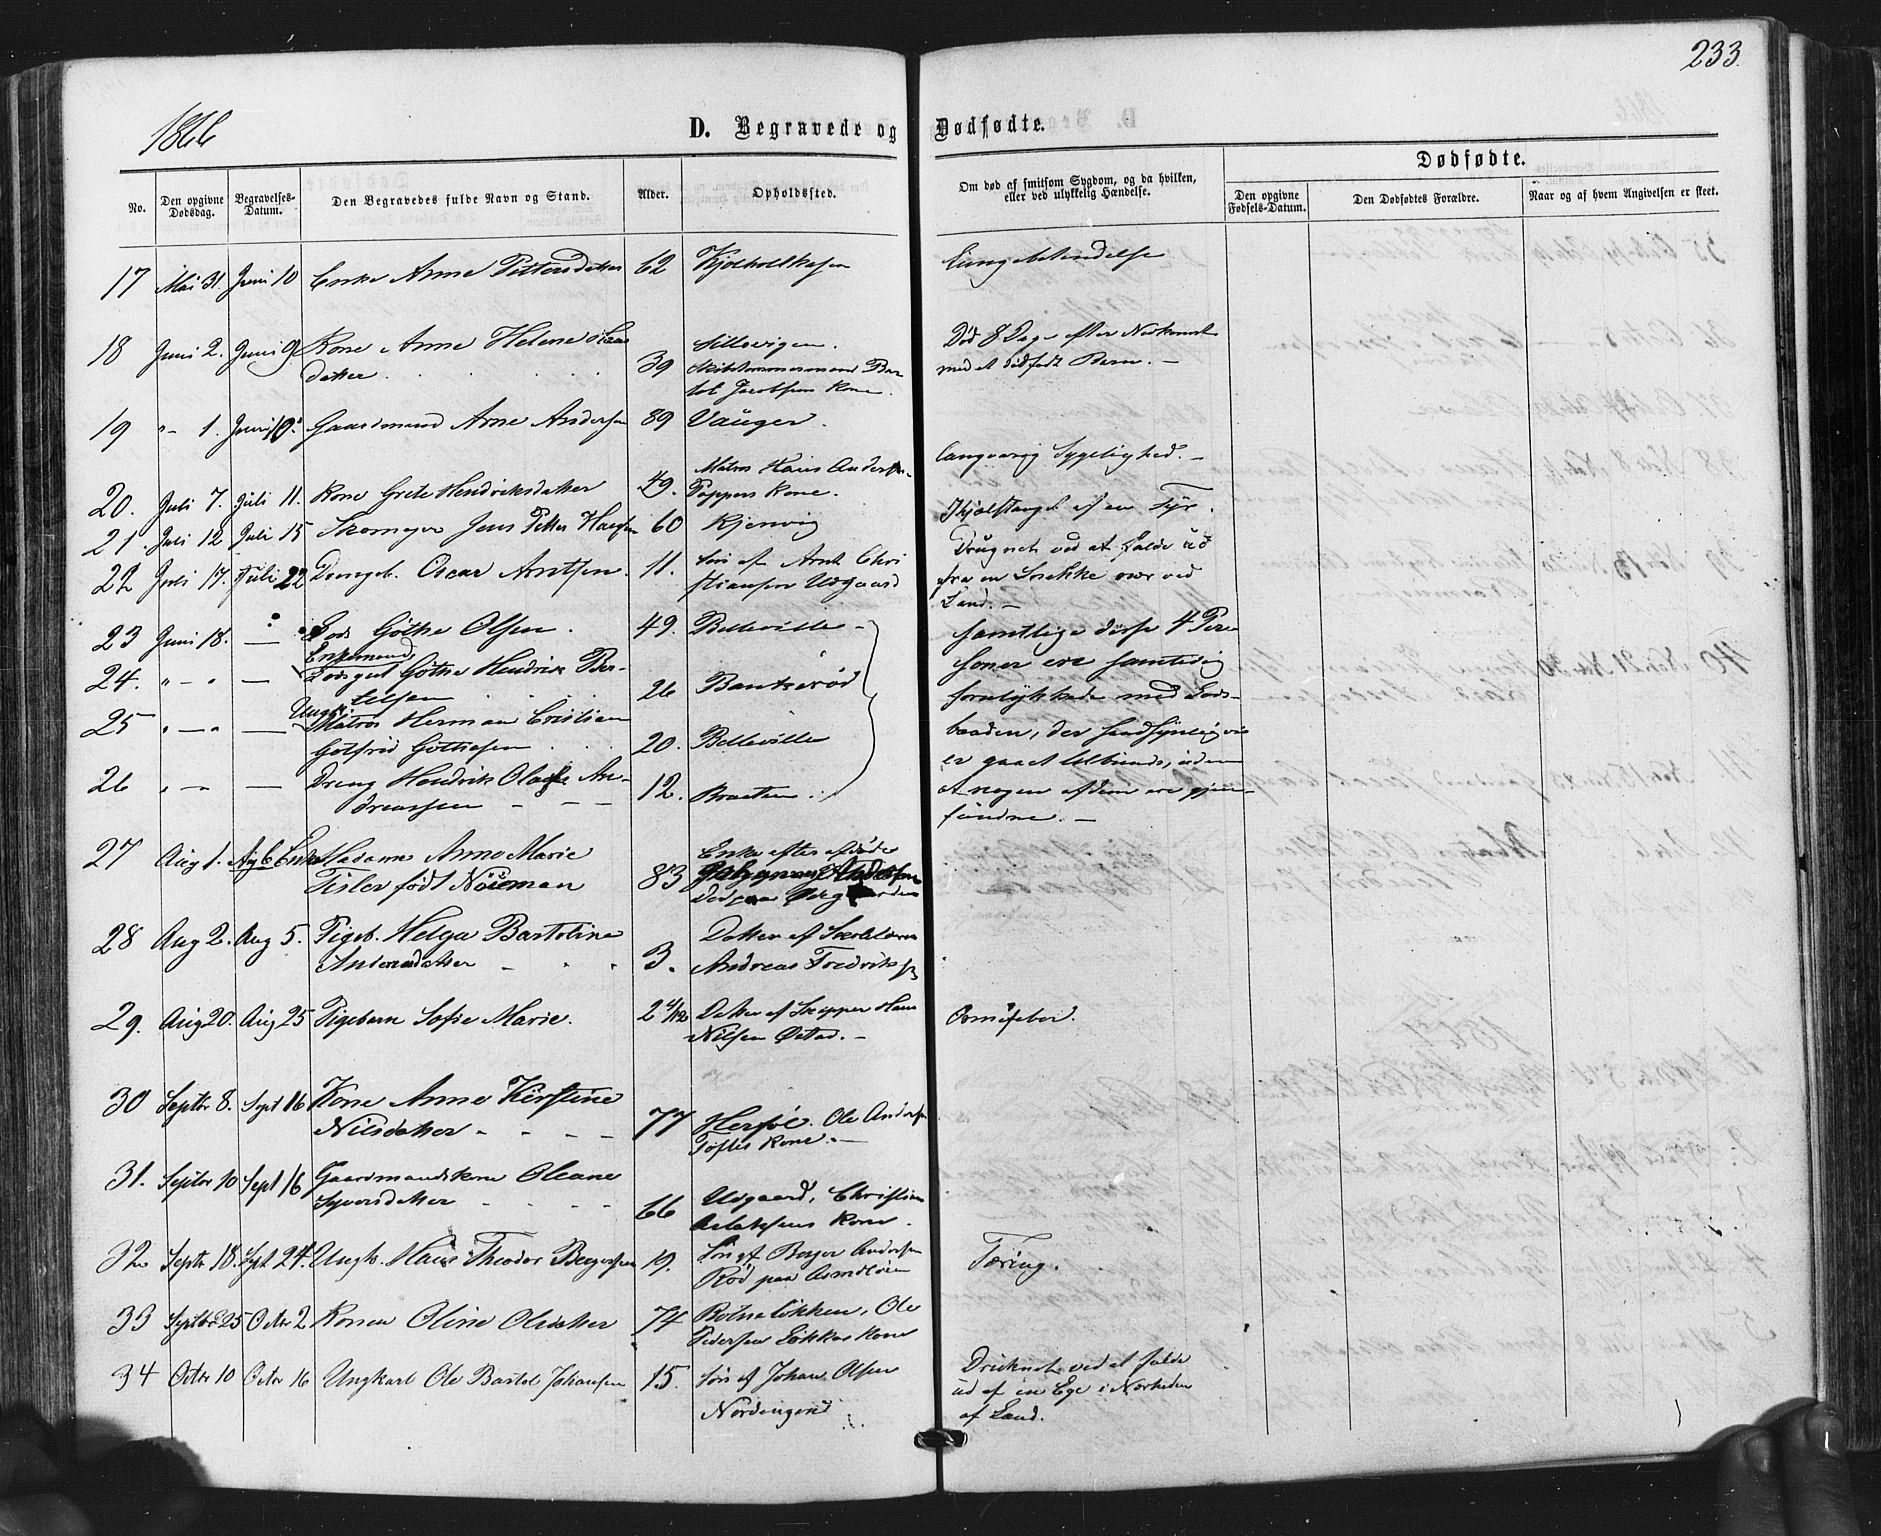 233.
1866
D. Begravede og Dødfødte.
No.
Den opgivne Dødsdag.
Begravelses-Datum.
Den Begravedes fulde Navn og Stand.
Alder.
Opholdssted.
Om død af smitsom Sygdom, og da hvilken,
eller ved ulykkelig Hændelse.
Dødfødte.
Den opgivne Fødsels-Datum.
Den Dødfødtes Forældre.
Naar og af hvem Angivelsen er skeet.
17 Mai 31. Juni 10 Enke Anne Pettersdatter 62
18 Juni 2. Juni 9. Kone Anne Helene
datter. 39
Skibstømmermand
Jacobsens Kone.
Død 8 Dage efter Nedkomst
med et dødfødt Barn. —
19 "— 1. Juni 10. Gaardmand Arne Andersen 89 Vauger.
Langvarig Sygelighed. —
20. Juli 7. Juli 11. Kone Grete Hendriksdatter 49.
Matros Hans Andersen
Toppers Kone.
21. Juli 12 Juli 15 Jens Petter Hansen 60 Kjenvig
Ihjelstanget af en Tyr.
22 Juli 17. Juli 22 Drengeb. Oscar Arntsen. 11.
Søn af Arnt Chri
stiansen Udgaard
Drugnet ved at falde ud
fra en Snekke nær ved
Land. —
23 Juni 18. — Lods Göthe Olsen. 49. Belleville —
24. " — " — Enkemand
Göthe Hendrik Ber-
telsen 26
25 " — " — Ungk.
Matros Herman Cristian
Gotfrid Gøthesen. 20. Belleville
26 " — — Dreng Hendrik An-
dreassen — — — 12. Braaten.
Samtlige disse 4 Per-
soner ere samtidig
forulykkede med Lods-
baaden, der sandsynligvis
er gaaet tilbunds, uden
at nogen af dem ere gjen-
fundne. —
27 Aug 1. Aug 6 Enke Madame Anne Marie
Tisler født Nöreman 83
Enke efter afdøde
28 Aug 2. Aug 5. Pigeb. Helga Bartoline
Andreasdatter — 3.
Datter af Skolelærer
Andreas Fredriks
29. Aug 20. Aug 25 Pigebarn Sofie Marie. 2 4/12
Datter af Skipper Hans
Nilsen Østad. —
30 Septbr 8. Sept 16 Kone Anne Kirstine
Nilsdatter - - - - 77
Herføl. Ole Andersen
Toftes Kone. —
31. Septbr 10 Sept 16 Gaardmandskone Oleane
Syversdatter - - - - 66
Udgaard, Christian
Kone.
32 Septbr 18. Sept 24. Ungk. Hans Theodor Bergersen 19.
Søn af Berger Andersen
Rød paa Asmaløen
Tæring.
33 Septbr 25 Octbr 2 Konen Oline Olsdatter 74
Botneløkken, Ole
Pedersen Løkkes Kone
34 Octbr 10 Octbr 16 Ungkarl Ole Bartol Johansen 15.
Søn af Johan Olsen
Nordengen
Druknet ved at falde
ud af en Ege i Nærheden
af Land.